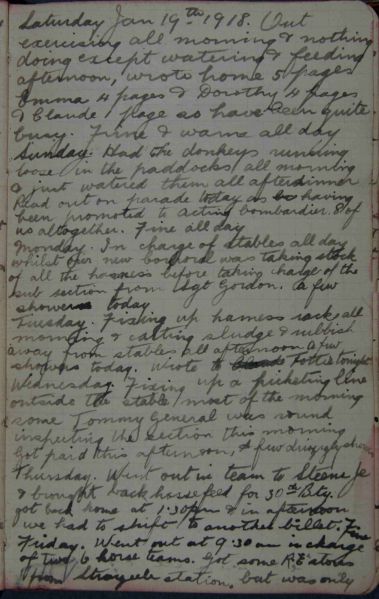 Saturday Jan 19th 1918. Out
exercising all morning & nothing
doing except watering & feeding
afternoon, wrote home 5 pages
Emma 4 pages & Dorothy 4 pages
& Claude 1 page so have been quite
busy. Fine & warm all day
Sunday. Had the donkeys running
loose in the paddocks all morning
& just watered them all after dinner
Read out on parade today as having
been promoted to acting bombardier. 8 of
us altogether. Fine all day
Monday. In charge of stables all day
whilst our new corporal was taking stock
of all the harness before taking charge of the
sub section from Sgt Gordon. A few
showers today
Tuesday. Fixing up harness rack all
morning & carting sludge & rubbish
away from stables all afternoon A few
showers today. Wrote to Lottie tonight
Wednesday. Fixing up a picketing line
outside the stable most of the morning
some Tommy General was round
inspecting the section this morning
Got paid this afternoon, & few drizzly showers
Thursday. Went out in team to Steene Je
& brought back horse feed for 50th Bty.
got back home at 1.30pm & in afternoon
we had to shift to another billet. Fine
Friday. Went out at 9.30 am in charge
of two 6 horse teams. Got some R.E. stores
from station, but was only